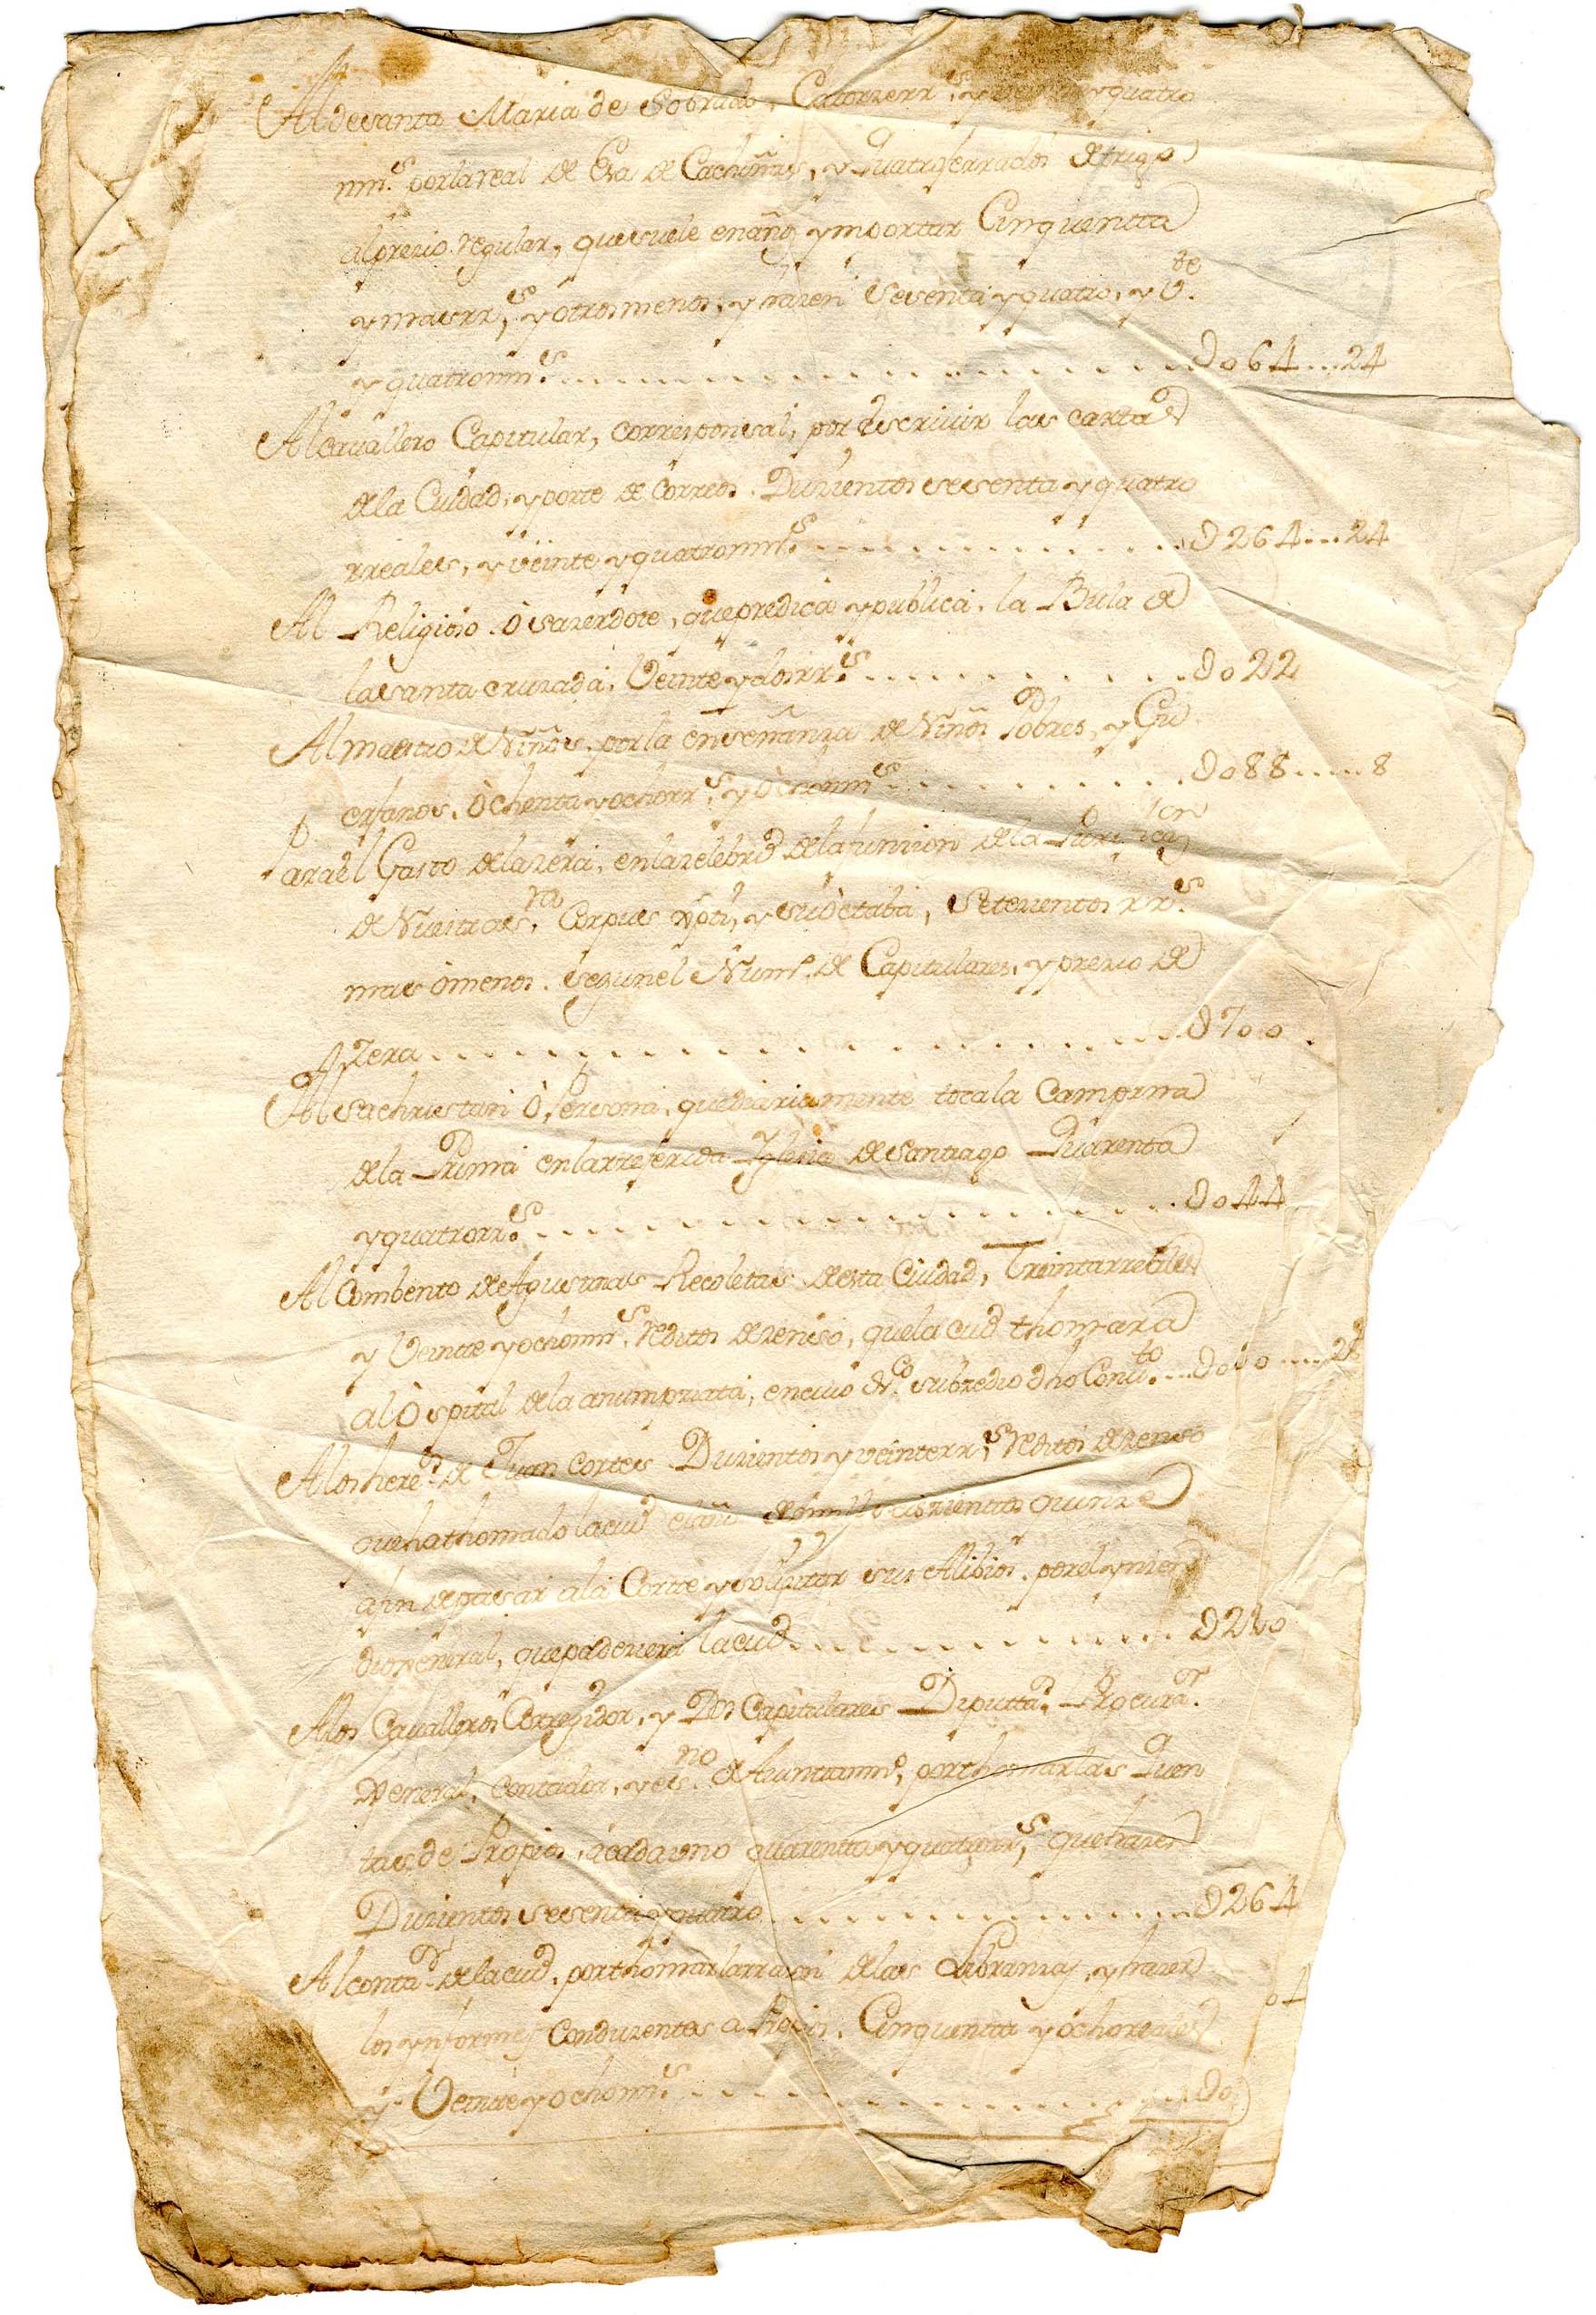 Al de santa Maria de Sobrado, Catorzerr.s y quatro
mrs. por la real de Cachiñas, y Quatro ferrados de trigo
al prezio regular, que suele en año ymportar Cinquentta
y mas rr.s, y otros menos, y hazen Sesenta y quatro, y V.te
y quatro mrs. ........ D o 64 ... 24
Al Cavallero Capitular, corresponsal, por escrivir las cartas
de la Ciudad, y porte de Correos. Duzientos sesenta y quatro
rreales, y veinte y quatro mrs. ........ D 264 ... 24
Al Religioso, ò sazerdote, que predica y publica, la Bula de
la santa cruzada, Veinte y dos rr.s ........ D o 22
Al maestro de Niños, por la enseñanza de Niños Pobres, y Gu
erfanos, Ochenta y ocho rr.s y òcho mrs ........ D o 88 .... 8
Para el Gasto de la zera, en la zelebrd. de la funzion de la Purificaz.ion
de Nuestra S.ra, Corpus xpti, y su òctaba, Setezientos rr.s
mas ò menos, segun el Num.o de Capitulares, y prezio de
zera ........ D 700.
Al sachristan ò Persona, que diariamente toca la Campana
de la Prima en la rreferida Iglesia de Santiago Quarenta
y quatro rr.s ........ D o 44
Al Combento de Agustinas Recoletas de esta Ciudad, Treinta rreales
y Veintte y ocho mrs, reditos de zenso, que la ciud thomara
al Ospital de la anumpziata, en cuio dr.o subzedio dho Conv.to ... D o 30 .... 28
A los hered.s de Juan Cortes Duzientos y veinte rr.s, reditos de zenso
que ha thomado la ciud el año de mill y seiszientos quinze
a fin de pasar a la Corte y solizitar sus Alibios, por el yncen
dio General, que padeziera la ciud ........ D 220
A los Cavalleros Corregidor, y Dos Capitulares Diputtad.s Procurad.r
General, Contador, y es.no de Aiuntam.to, por thomar las Quen
tas de Propios, a cada uno quarentta y quatro rr.s, que hazen
Duzientos sesenta y quatro ........ D 264
Al contad.r de la ciud, por thomar la rrazon de las Libranzas, y hazer
los ynformes Conduzentes a Propios, Cinquentta y ocho reales
y Veintte y ocho mrs. ........ D o